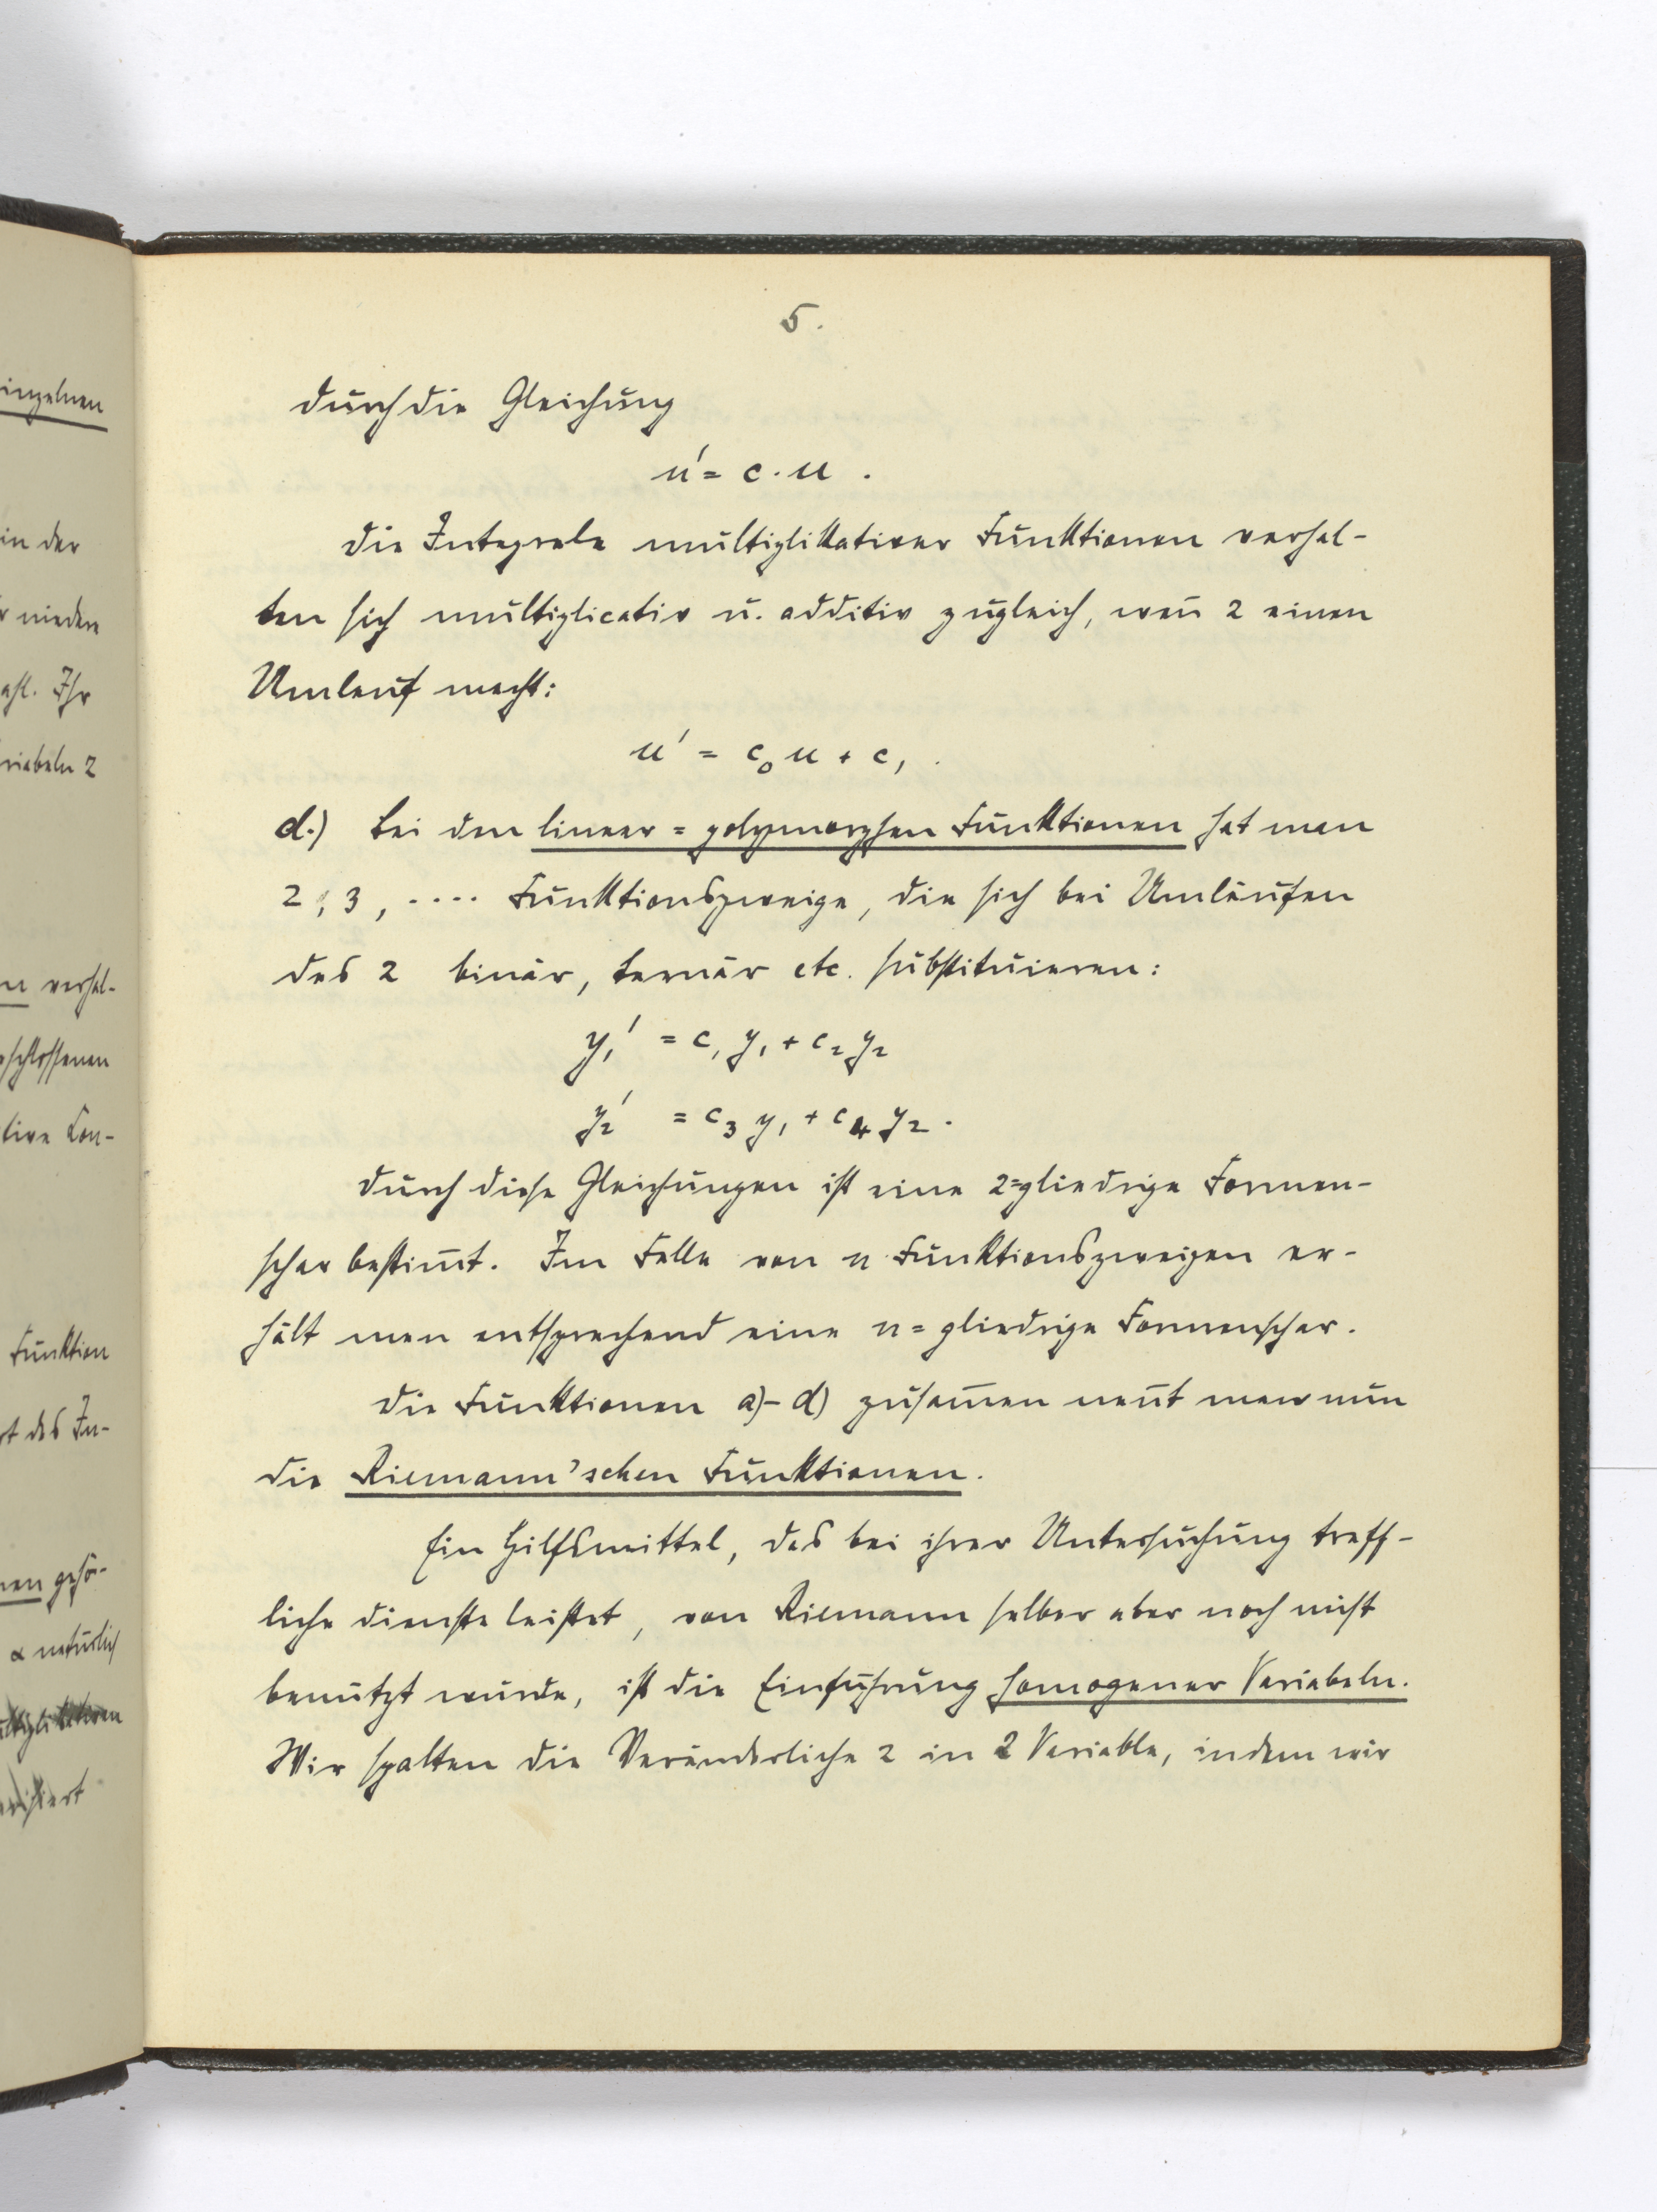 5.
durch die Gleichung
u' = c · u .
Die Integrale multiplikativer Funktionen verhal-
ten sich multiplicativ u. additiv zugleich, weñ z einen
Umlauf macht:
u' = c₀ u + c₁ .
d.) Bei den linear=polymorphen Funktionen hat man
2, 3, .... Funktionszweige, die sich bei Umläufen
des z binär, ternär etc. substituieren:
y₁' = c₁ y₁ + c₂ y₂
y₂' = c₃ y₁ + c₄ y₂ .
Durch diese Gleichungen ist eine 2=gliedrige Formen-
schar bestim̄t. Im Falle von n Funktionszweigen er-
hält man entsprechend eine n=gliedrige Formenschar.
Die Funktionen a)-d) zusam̄en nen̄t man nun
die Riemann'schen Funktionen.
Ein Hilfsmittel, das bei ihrer Untersuchung treff-
liche Dienste leistet, von Riemann selber aber noch nicht
benutzt wurde, ist die Einführung homogener Variabeln.
Wir spalten die Veränderliche z in 2 Variable, indem wir
inzelnen
in der
niedere
Ihr
riabeln z
n verhal-
schlossenen
tive Con-
Funktion
t des In-
nen gehö-
α natürlich